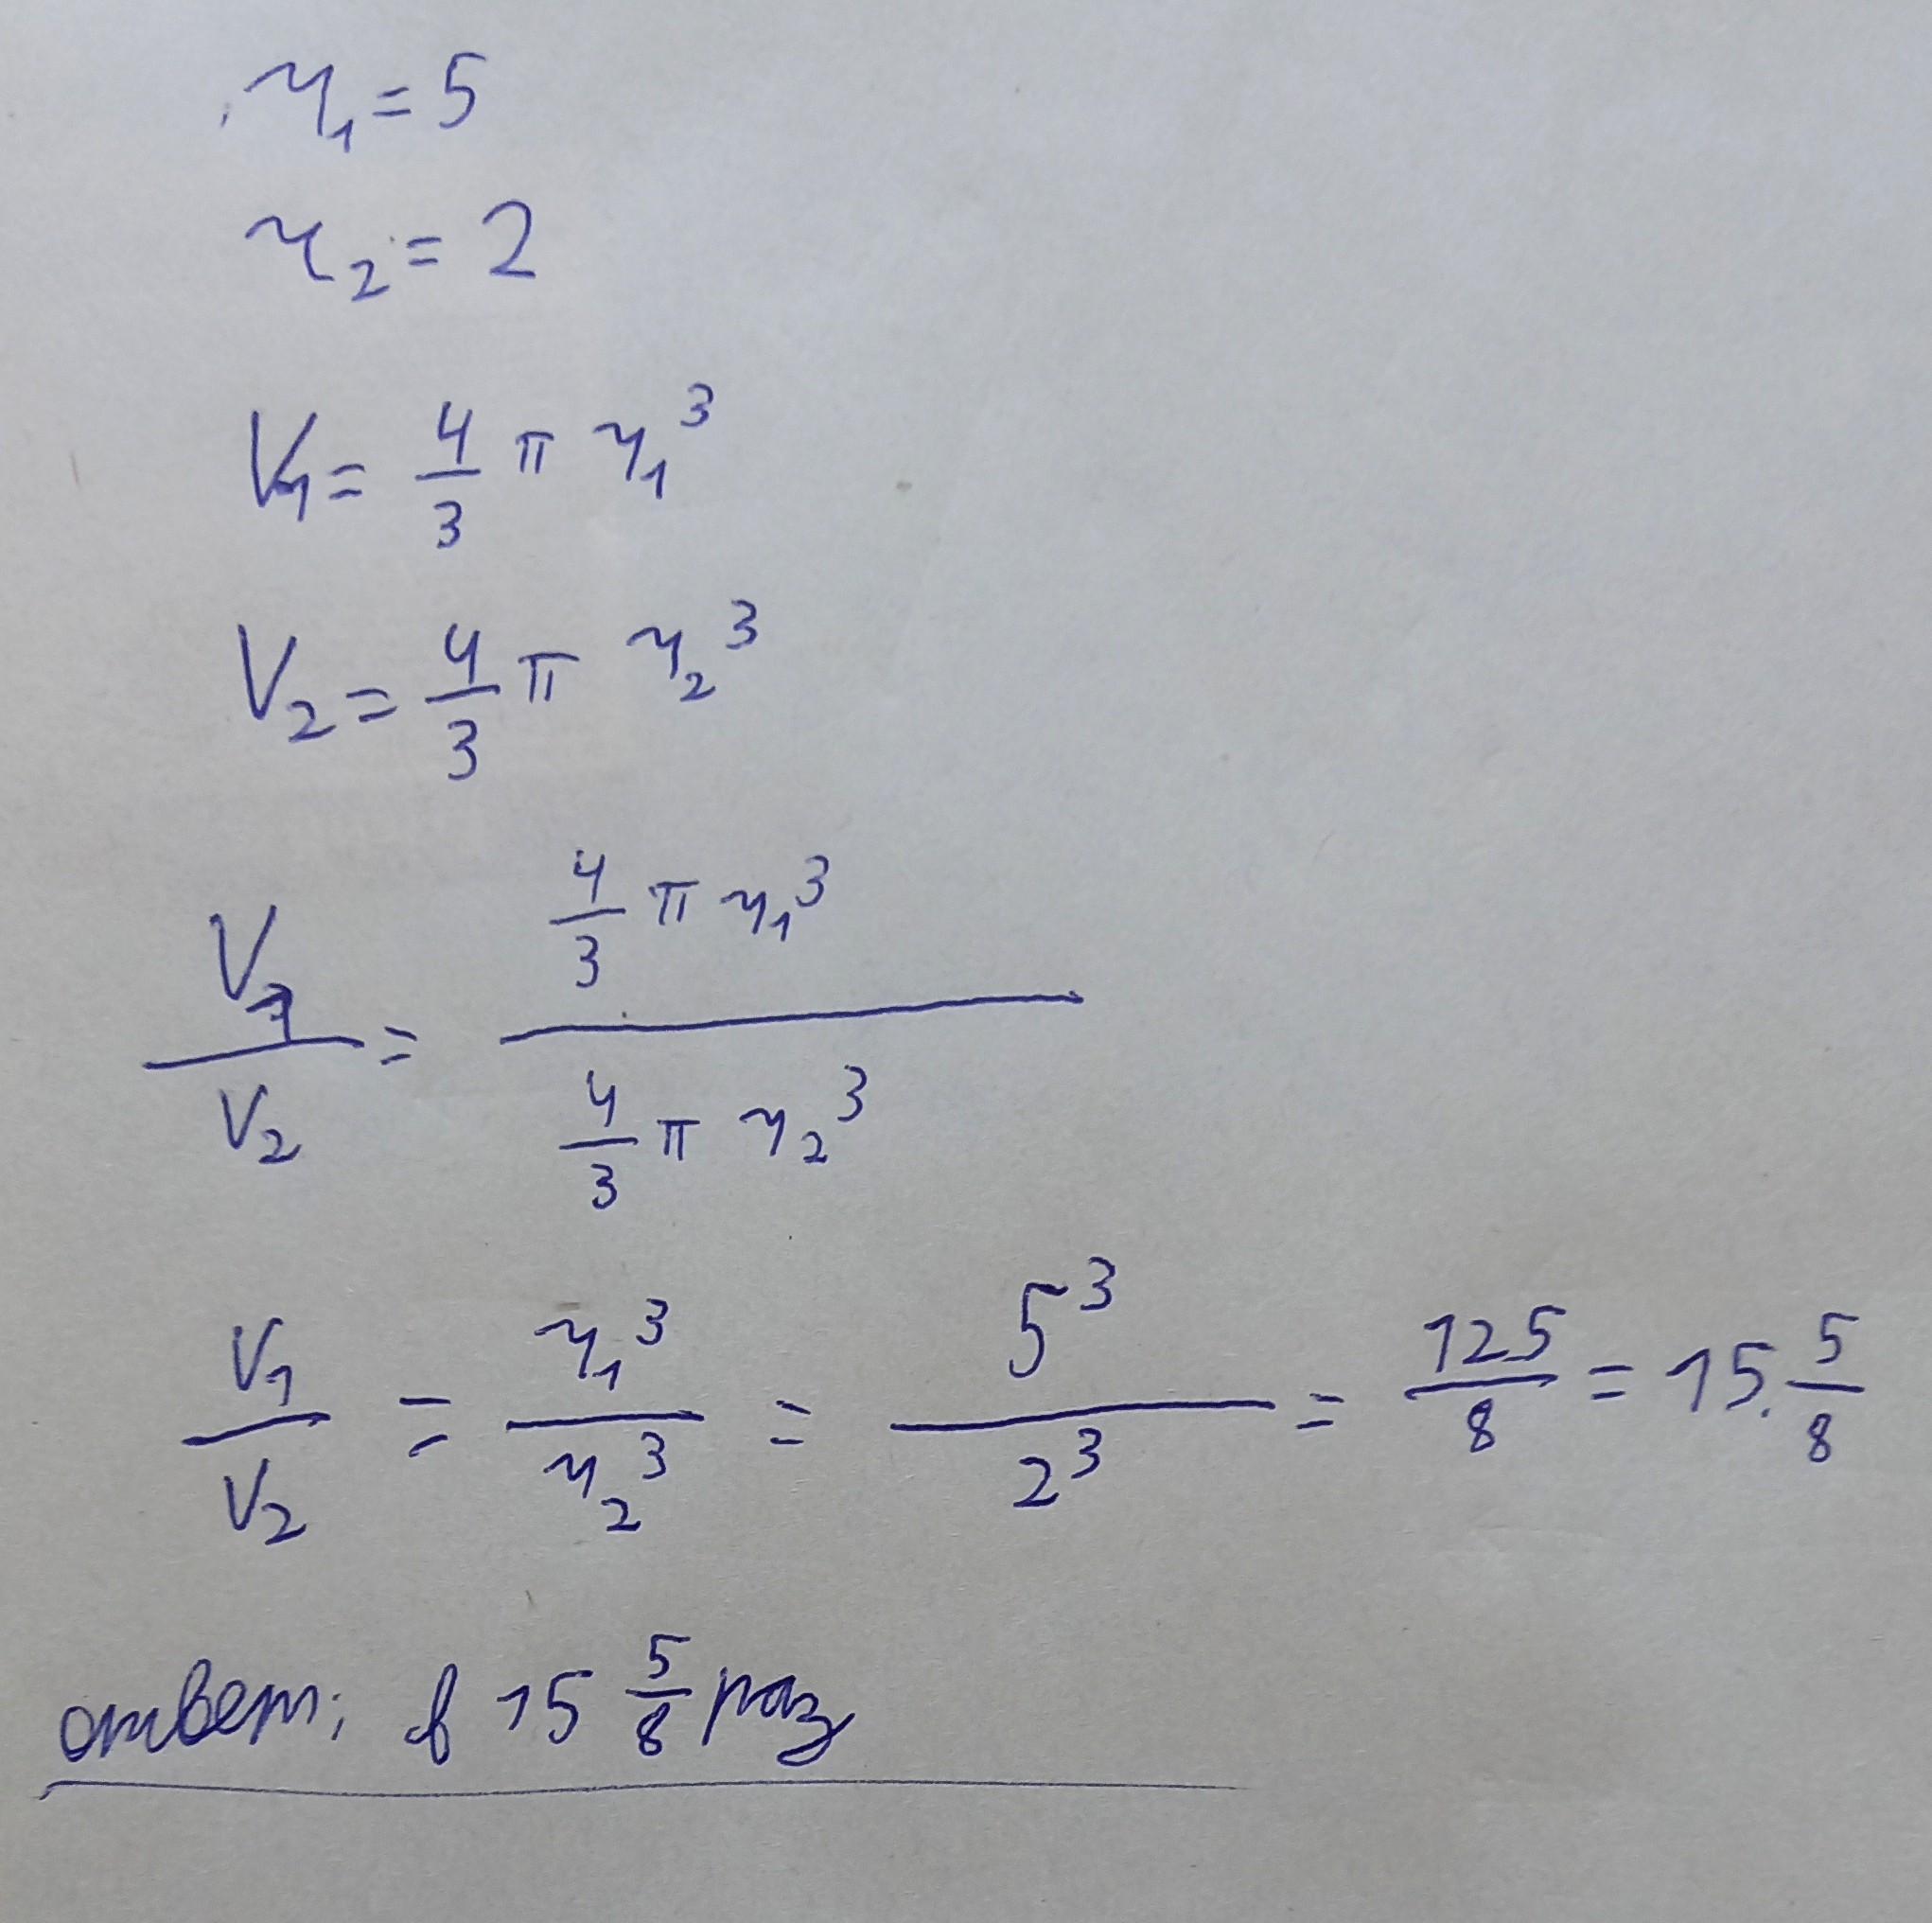 r₁ = 5
r₂ = 2
V₁ = 4/3 π r₁³
V₂ = 4/3 π r₂³
V₁/V₂ = (4/3 π r₁³)/(4/3 π r₂³)
V₁/V₂ = r₁³/r₂³ = 5³/2³ = 125/8 = 15. 5/8
ответ: в 15 5/8 раз